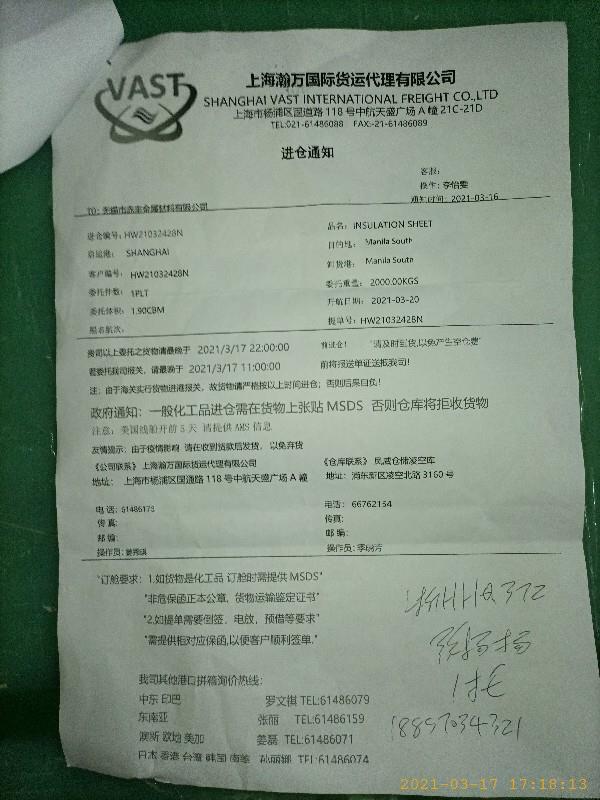 VAST
上海瀚万国际货运代理有限公司
SHANGHAI VAST INTERNATIONAL FREIGHT CO.,LTD
上海市杨浦区国道路118号中航天盛广场A幢21C-21D
TEL:021-61486088 FAX:-21-61486089
进仓通知
客服:
操作: 李怡雯
通知时间: 2021-03-16
TO: 无锡市 金属材料有限公司
进仓编号: HW21032428N
品名: INSULATION SHEET
启运港: SHANGHAI
目的地: Manila South
客户编号: HW21032428N
卸货港: Manila South
委托件数: 1PLT
委托重量: 2000.00KGS
委托体积: 1.90CBM
开航日期: 2021-03-20
船名航次:
提单号: HW21032428N
贵司以上委托之货物请最晚于 2021/3/17 22:00:00 前进仓! "请及时到货,以免产生空仓费"
若委托我司报关, 请最晚于 2021/3/17 11:00:00 前将报送单证送抵我司!
注: 由于海关实行货物进港报关, 故货物请严格按以上时间进仓; 否则后果自负!
政府通知: 一般化工品进仓需在货物上张贴 MSDS 否则仓库将拒收货物
注意: 美国线船开前5天 请提供AMS信息
友情提示: 由于疫情影响 请在收到货款后发货, 以免弃货
《公司联系》上海瀚万国际货运代理有限公司
《仓库联系》 凤威仓储凌空库
地址: 上海市杨浦区国通路118号中航天盛广场A幢
地址: 浦东新区凌空北路3160号
电话: 61486173
电话: 66762154
传真:
传真:
邮编:
邮编:
操作员: 姜秀琪
操作员: 李晓芳
"订舱要求: 1.如货物是化工品 订舱时需提供MSDS"
"非危保函正本公章, 货物运输鉴定证书"
"2.如提单需要倒签, 电放, 预借等要求"
"需提供相对应保函,以便客户顺利签单."
我司其他港口拼箱询价热线:
中东 印巴 罗文祺 TEL:61486079
东南亚 张丽 TEL:61486159
澳新 欧地 美加 姜磊 TEL:61486071
日本 香港 台湾 韩国 南美 孙丽娜 TEL:61486074
1托
18857034321
2021-03-17 17:18:13